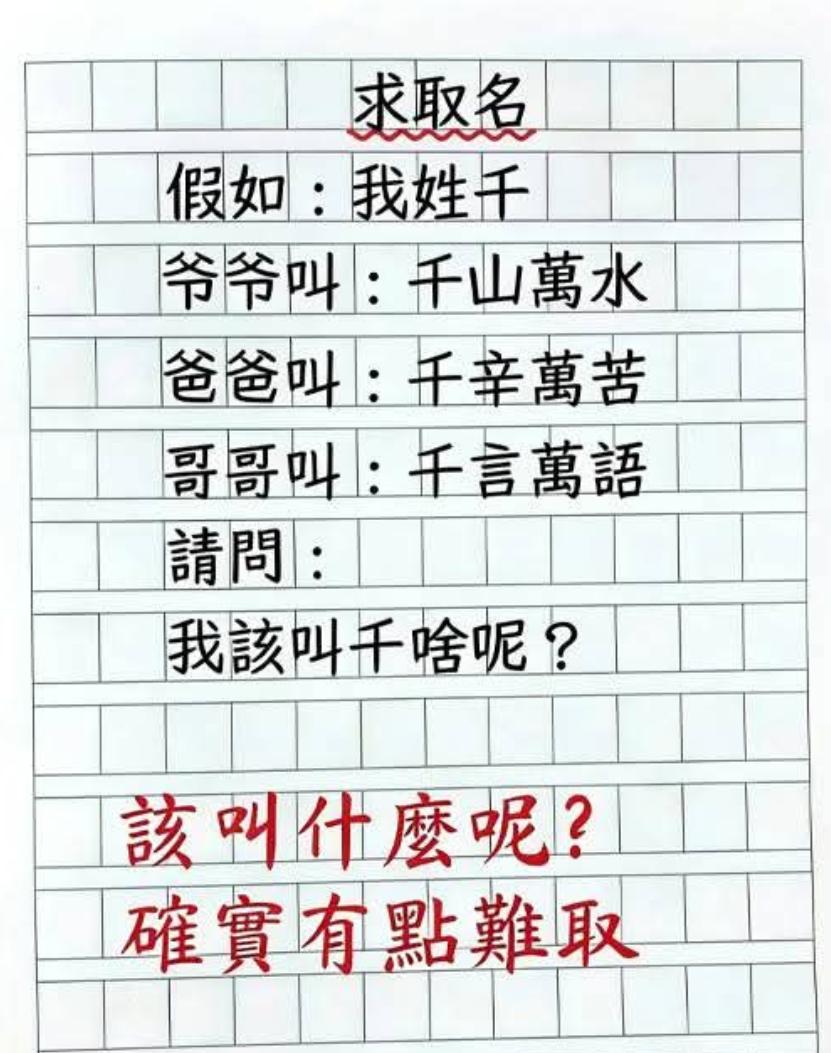 求取名
假如：我姓千
爷爷叫：千山萬水
爸爸叫：千辛萬苦
哥哥叫：千言萬語
請問：
我該叫千啥呢？
該叫什麼呢？
確實有點難取